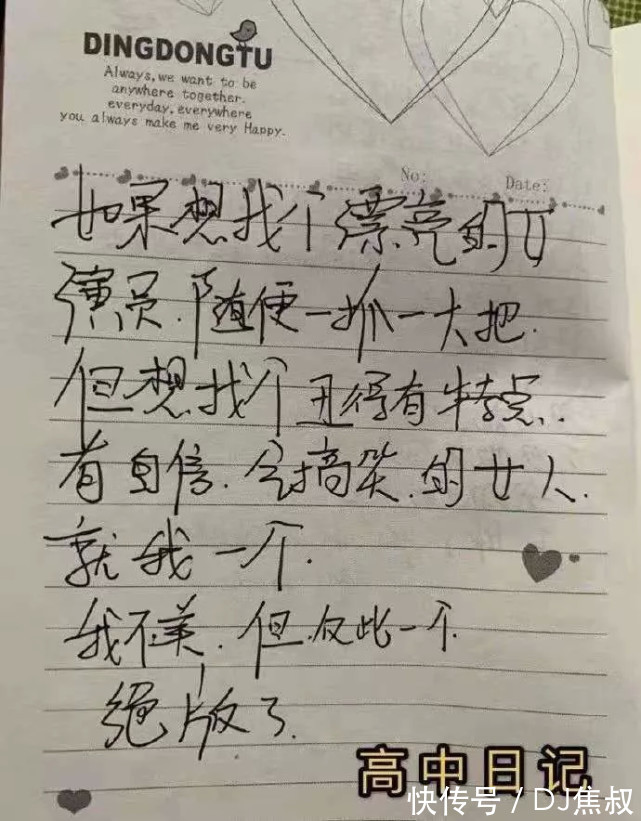 DINGDONGTU
Always, we want to be
anywhere together.
everyday, everywhere
you always make me very Happy.
No:
Date:
如果想找个漂亮的女
演员.随便一抓一大把.
但想找个丑得有特点.
有自信.会搞笑.的女人.
就我一个.
我不美.但.仅此一个.
绝版了.
高中日记
快传号 / DJ焦叔